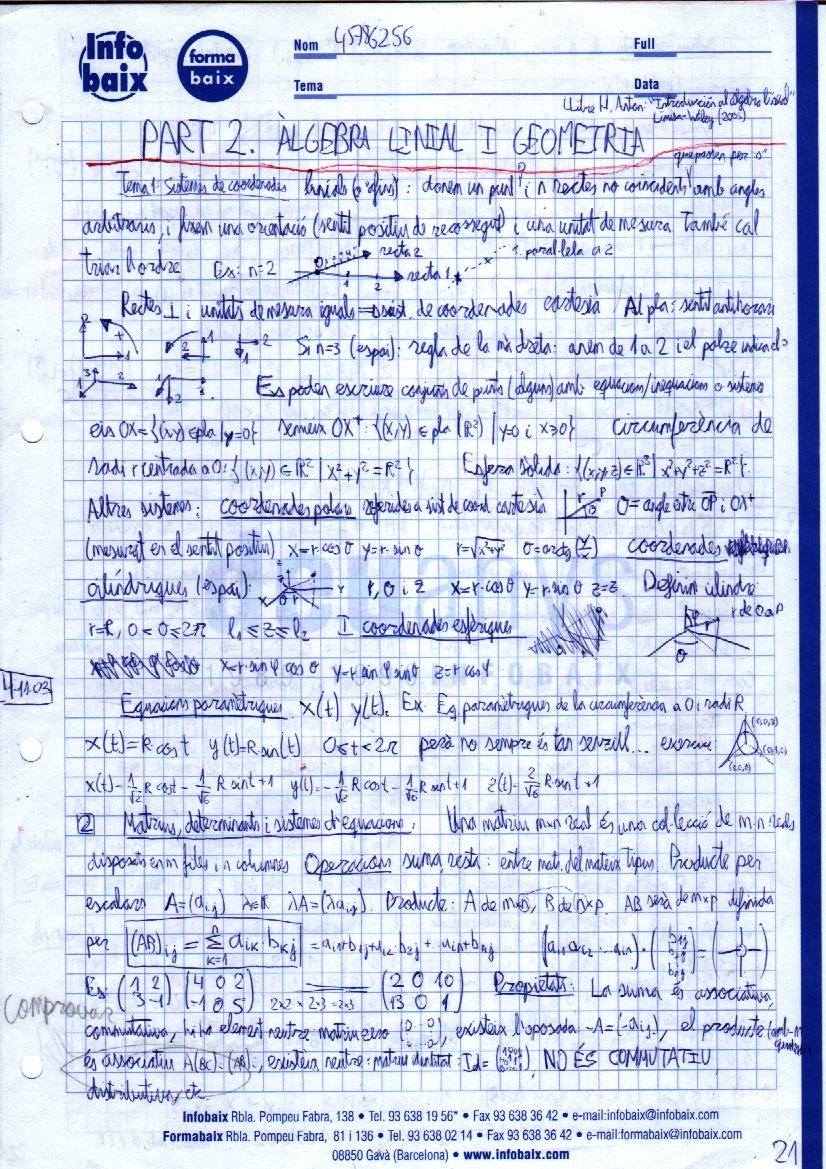 Infò baix
forma baix
Nom 45786256 Full
Tema Data
Llibre H. Anton: "Introducción al álgebra lineal"
Limusa-Wiley (2003)
PART 2. ÀLGEBRA LINIAL I GEOMETRIA
que passen per 0
Tema 1: Sistemes de coordenades linials (o afins): donem un punt 0 i n rectes no coincidents amb angles
arbitraris, i fixem una orientació (sentit positiu de recorregut) i una unitat de mesura. També cal
triar l'ordre. Ex: n=2 recta 2 recta 1 r. paral·lela a 2
Rectes ⊥ i unitats de mesura iguals ⇒ sist. de coordenades cartesià. Al pla: sentit antihorari
Si n=3 (espai): regla de la mà dreta: anem de 1 a 2 i el polze indica el 3
Es poden escriure conjunts de punts (alguns) amb equacions/inequacions o sistemes
eix OX={(x,y) ∈ pla | y=0} semieix OX⁺: {(x,y) ∈ pla (ℝ²) | y=0 i x≥0} Circumferència de
radi r centrada a 0: {(x,y) ∈ ℝ² | x²+y²=R²} Esfera sòlida: {(x,y,z) ∈ ℝ³ | x²+y²+z²=R²}
Altres sistemes: coordenades polars referides a sist de coord. cartesià r P θ θ= angle entre OP i OX⁺
(mesurat en el sentit positiu) x=r·cos θ y=r·sin θ r=√x²+y² θ=arctg(y/x) coordenades
cilíndriques (espai): r, θ i z x=r·cos θ y=r·sin θ z=z. Definim cilindre
r=R, 0<θ≤2π l₁≤z≤l₂ I coordenades esfèriques r de 0 a P
x=r·sin φ cos θ y=r·sin φ sin θ z=r cos φ
4-11-03
Equacions paramètriques x(t) y(t). Ex. Eq. paramètriques de la circumferència a 0 i radi R
x(t)=R·cos t y(t)=R sin(t) 0≤t<2π però no sempre és tan senzill... exercici: (0,0,3) (0,3,0) (3,0,0)
x(t)=1/√2 R cost - 1/√6 R sint+1 y(t)=-1/√2 R cost - 1/√6 R sint+1 z(t)=2/√6 R sint+1
2 Matrius, determinants i sistemes d'equacions. Una matriu mxn real és una col·lecció de m·n reals
disposats en m files i n columnes Operacions suma, resta: entre mats. del mateix tipus. Producte per
escalars A=(aij) λ∈ℝ λA=(λaij). Producte: A de mxn, B de nxp. AB serà de mxp definida
per (AB)ij = Σ k=1 n aik·bkj = ai1·b1j+ai2·b2j+...ain·bnj (ai1 ai2 ... ain)·(b1j b2j ... bnj)
Ex (1 2 3 -1)(4 0 2 -1 0 5) 2x2 × 2x3=2x3 (2 0 10 13 0 1) Propietats: La suma és associativa,
comprovar
commutativa, hi ha element neutre matriu zero (0...0 0...0), existeix l'oposada -A=(-aij), el producte
és associatiu A(BC)=(AB)C, existeix neutre: matriu identitat: Id= NO ÉS COMMUTATIU
distributiva, etc.
Infobaix Rbla. Pompeu Fabra, 138 • Tel. 93 638 19 56* • Fax 93 638 36 42 • e-mail:infobaix@infobaix.com
Formabaix Rbla. Pompeu Fabra, 81 i 136 • Tel. 93 638 02 14 • Fax 93 638 36 42 • e-mail:formabaix@infobaix.com
08850 Gavà (Barcelona) • www.infobaix.com
21